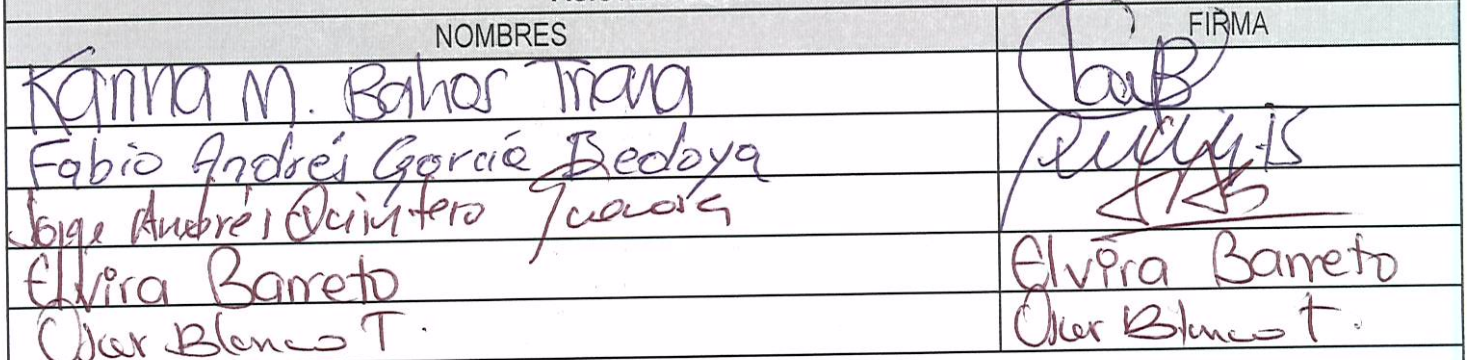 NOMBRES FIRMA
Karina M. Bahos Triana
Fabio Andrés García Bedoya
Jorge Andrés Quintero
Elvira Barreto Elvira Barreto
Oscar Blanco T. Oscar Blanco T.